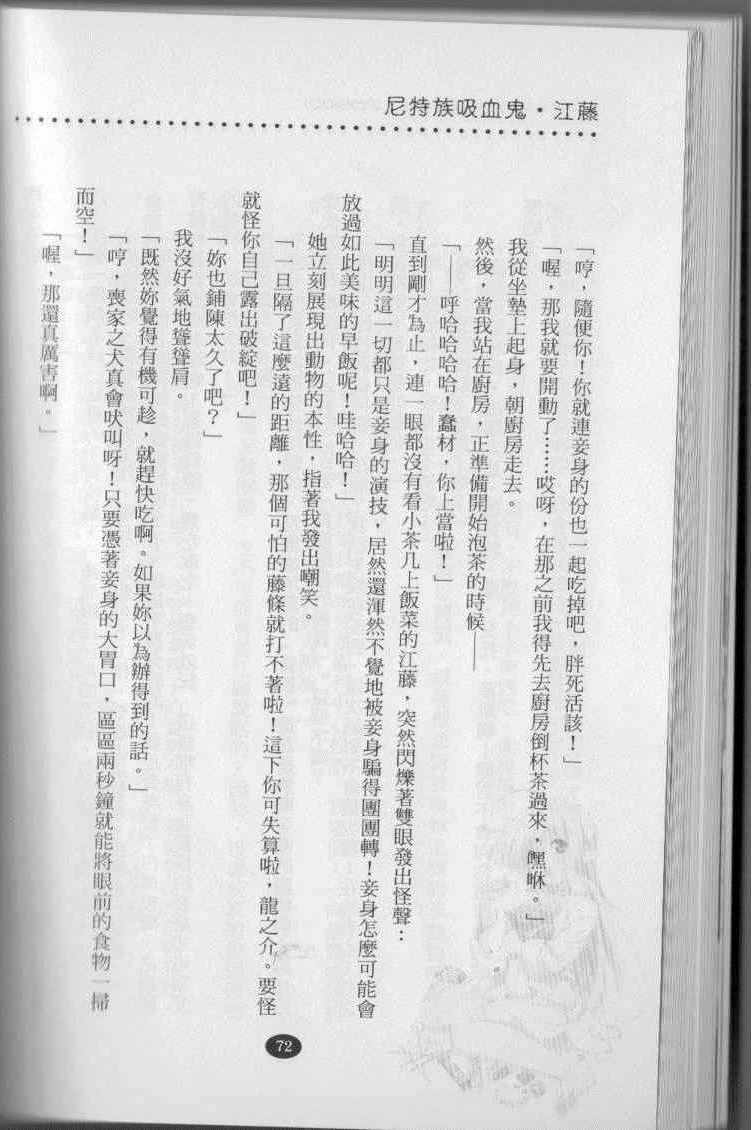 尼特族吸血鬼・江藤
「哼，隨便你！你就連妾身的份也一起吃掉吧，胖死活該！」
「喔，那我就要開動了……哎呀，在那之前我得先去廚房倒杯茶過來，嘿咻。」
我從坐墊上起身，朝廚房走去。
然後，當我站在廚房，正準備開始泡茶的時候——
「——呼哈哈哈哈！蠢材，你上當啦！」
直到剛才為止，連一眼都沒有看小茶几上飯菜的江藤，突然閃爍著雙眼發出怪聲：
「明明這一切都只是妾身的演技，居然還渾然不覺地被妾身騙得團團轉！妾身怎麼可能會
放過如此美味的早飯呢！哇哈哈！」
她立刻展現出動物的本性，指著我發出嘲笑。
「一旦隔了這麼遠的距離，那個可怕的藤條就打不著啦！這下你可失算啦，龍之介。要怪
就怪你自己露出破綻吧！」
「妳也鋪陳太久了吧？」
我沒好氣地聳聳肩。
「既然妳覺得有機可趁，就趕快吃啊。如果妳以為辦得到的話。」
「哼，喪家之犬真會吠叫呀！只要憑著妾身的大胃口，區區兩秒鐘就能將眼前的食物一掃
而空！」
「喔，那還真厲害啊。」
72